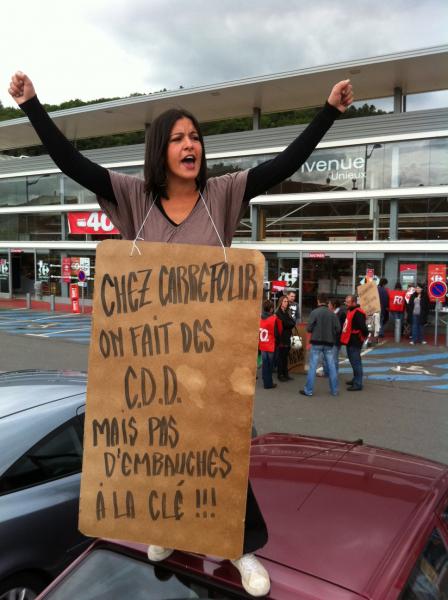 venue
Unieux
40
FO.
CHEZ CARREFOUR
ON FAIT DES
C.D.D.
MAIS PAS
D'EMBAUCHES
À LA CLÉ !!!